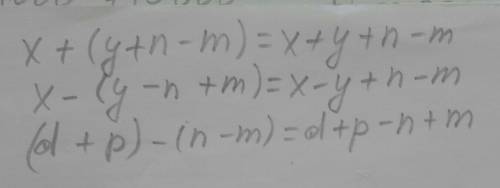 x + (y+n-m) = x+y+n-m
x - (y-n +m) = x-y+n-m
(d + p) - (n-m) = d+p-n+m